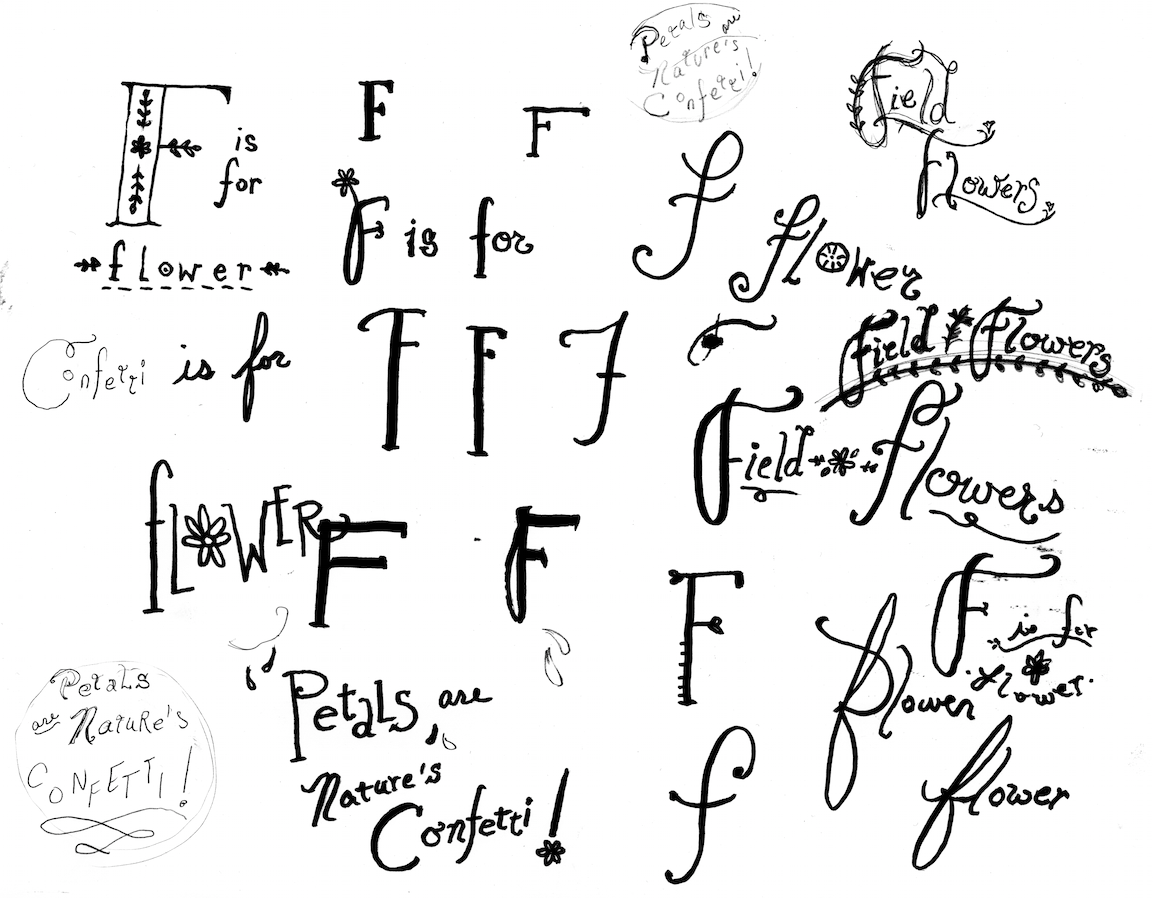 F is
for
flower
F
F
Petals are
Nature's
Confetti!
Field
Flowers
F is for
f
flower
Confetti is for
F F F
Field Flowers
Field flowers
FLOWER
F
F
F
F is for
flower
flower
Petals
are Nature's
CONFETTI!
Petals are
Nature's
Confetti!
f
flower